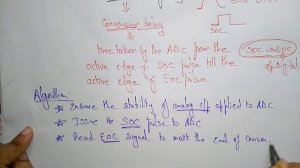 SOC
Conversion delay
time taken by the ADC from the
SOC → EOC
active edge of SOC pulse till the
active edge of EOC pulse
Algorithm:
* Ensure the stability of analog i/p applied to ADC
* Issue the SOC pulse to ADC
* Read EOC signal to mark the end of conver